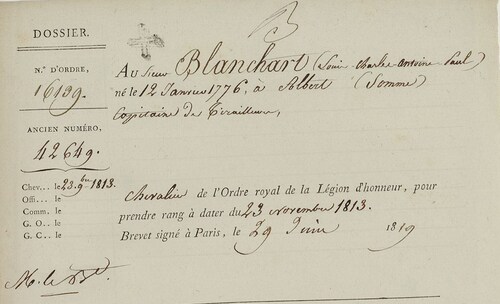 B
DOSSIER.
N.º D'ORDRE,
16139.
ANCIEN NUMÉRO,
42649.
Chev... le 23. 9bre 1813.
Offi... le
Comm. le
G. O... le
G. C... le
M. le
Au Sieur Blanchart (Louis-Charles-Antoine-Paul)
né le 12 Janvier 1776, a Albert (Somme)
Capitaine de Tirailleurs,
Chevalier de l'Ordre royal de la Légion d'honneur, pour
prendre rang à dater du 23 novembre 1813.
Brevet signé à Paris, le 29 Juin 1819